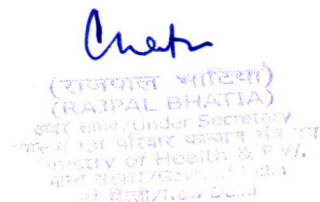 (राजपाल भाटिया)
(RAJPAL BHATIA)
अवर सचिव/Under Secretary
परिवार कल्याण
Ministry of Health & F.W.
भारत सरकार/Govt. of India
नई दिल्ली/New Delhi